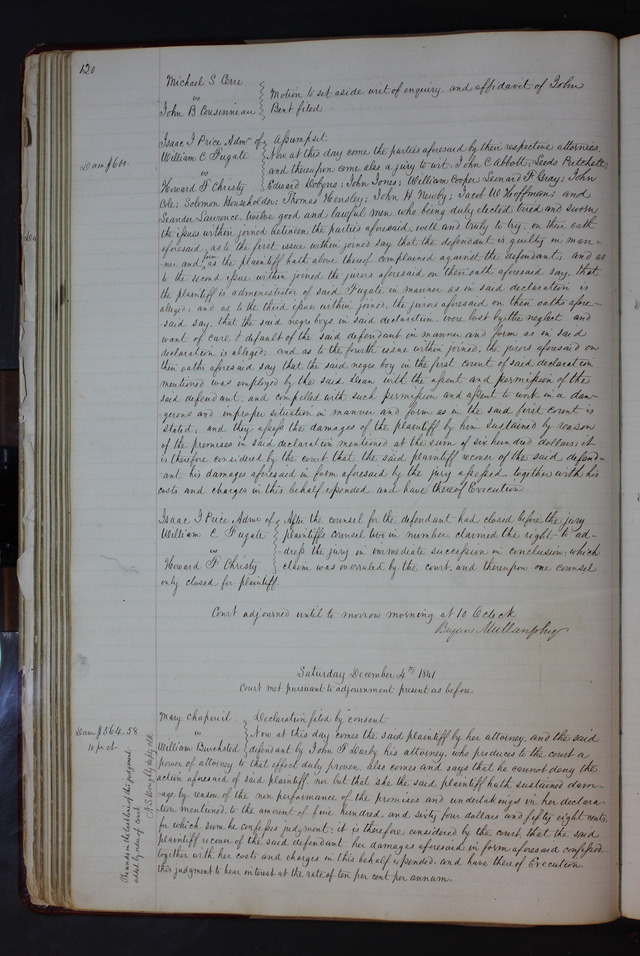 120
Michael S Cerre
vs
John B Cousenneau
Motion to set aside writ of enquiry, and affidavit of John
Bent filed
Isaac J Price Admr of
William C Fugate
vs
Howard F Christy
Dam $600.
Assumpsit
Now at this day come the parties aforesaid by their respective attornies
and thereupon come also a jury to wit, John C Abbott; Leeds Pritchett;
Edward Dobyns; John Jones; William Cooper; Leonard F Gray; John
Cole; Solomon Householder; Thomas Hensley; John H Newby; Jacob W Hoffman; and
Leander Laurence, twelve good and lawful men who being duly elected tried and sworn
the issues within joined between the parties aforesaid, well and truly to try, on their oath
aforesaid, as to the first issue within joined say that the defendant is guilty in man-
ner and form as the plaintiff hath above thereof complained against the defendant; and as
to the second issue within joined the jurors aforesaid on their oath aforesaid say, that
the plaintiff is administrator of said Fugate in manner as in said declaration is
alleged; and as to the third issue within joined, the jurors aforesaid on their oaths afore-
said say, that the said negro boys in said declaration were lost by the neglect and
want of care & default of the said defendant in manner and form as in said
declaration is alleged; and as to the fourth issue within joined, the jurors aforesaid on
their oaths aforesaid say that the said negro boy in the first count of said declaration
mentioned was employed by the said steam with the assent and permission of the
said defendant, and compelled with such permission and assent to work in a dan-
gerous and improper situation in manner and form as in the said first count is
stated, and they assess the damages of the plaintiff by him sustained by reason
of the promises in said declaration mentioned at the sum of six hundred dollars; it
is therefore considered by the court that the said plaintiff recover of the said defend-
ant his damages aforesaid in form aforesaid by the jury assessed together with his
costs and charges in this behalf expended, and have thereof Execution
Isaac J Price Admr of
William C Fugate
vs
Howard F Christy
After the counsel for the defendant had closed before the jury
plaintiffs counsel two in number claimed the right to ad-
dress the jury in immediate succession in conclusion, which
claim was overruled by the court, and thereupon one counsel
only closed for plaintiff.
Court adjourned until to morrow morning at 10 Oclock
Bryan Mullanphy
Saturday December 4th 1841
Court met pursuant to adjournment present as before
Mary Chaponeil
vs
William Burchsted
Dam $564.58
10 pr ct
Declaration filed by consent
Now at this day comes the said plaintiff by her attorney, and the said
defendant by John F Darby his attorney, who produces to the court a
power of attorney to that effect duly proven, also comes and says that he cannot deny the
action aforesaid of said plaintiff, nor but that she the said plaintiff hath sustained dam-
age by reason of the non performance of the promises and undertakings in her declara-
tion mentioned, to the amount of five hundred and sixty four dollars and fifty eight cents,
for which sum he confesses judgment; it is therefore considered by the court, that the said
plaintiff recover of the said defendant, her damages aforesaid in form aforesaid confessed
together with her costs and charges in this behalf expended, and have thereof Execution.
this judgment to bear interest at the rate of ten per cent per annum.
The words in the last line of this judgment
added by order of court